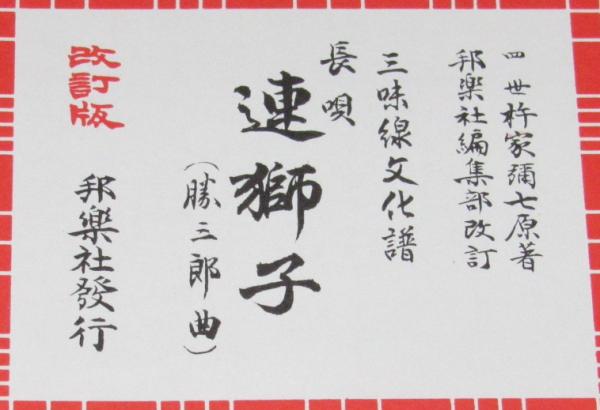 四世杵家彌七原著
邦樂社編集部改訂
三味線文化譜
長唄
連獅子
(勝三郎曲)
改訂版
邦樂社發行